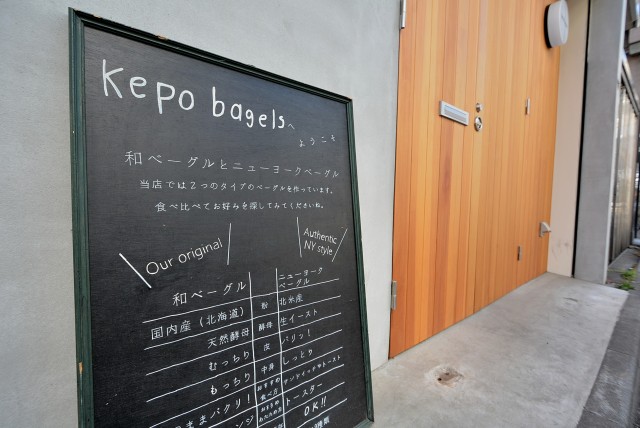 kepo bagelsへ
ようこそ
和ベーグルとニューヨークベーグル
当店では2つのタイプのベーグルを作っています。
食べ比べてお好みを探してみてくださいね。
Our original
Authentic
NY style
和ベーグル ニューヨーク
ベーグル
国内産(北海道) 粉 北米産
天然酵母 酵母 生イースト
むっちり 皮 パリッ!
もっちり 中身 しっとり
ままパクリ! おすすめ
食べ方 サンドイッチやトースト
おすすめ
あたため方 トースター
OK!!